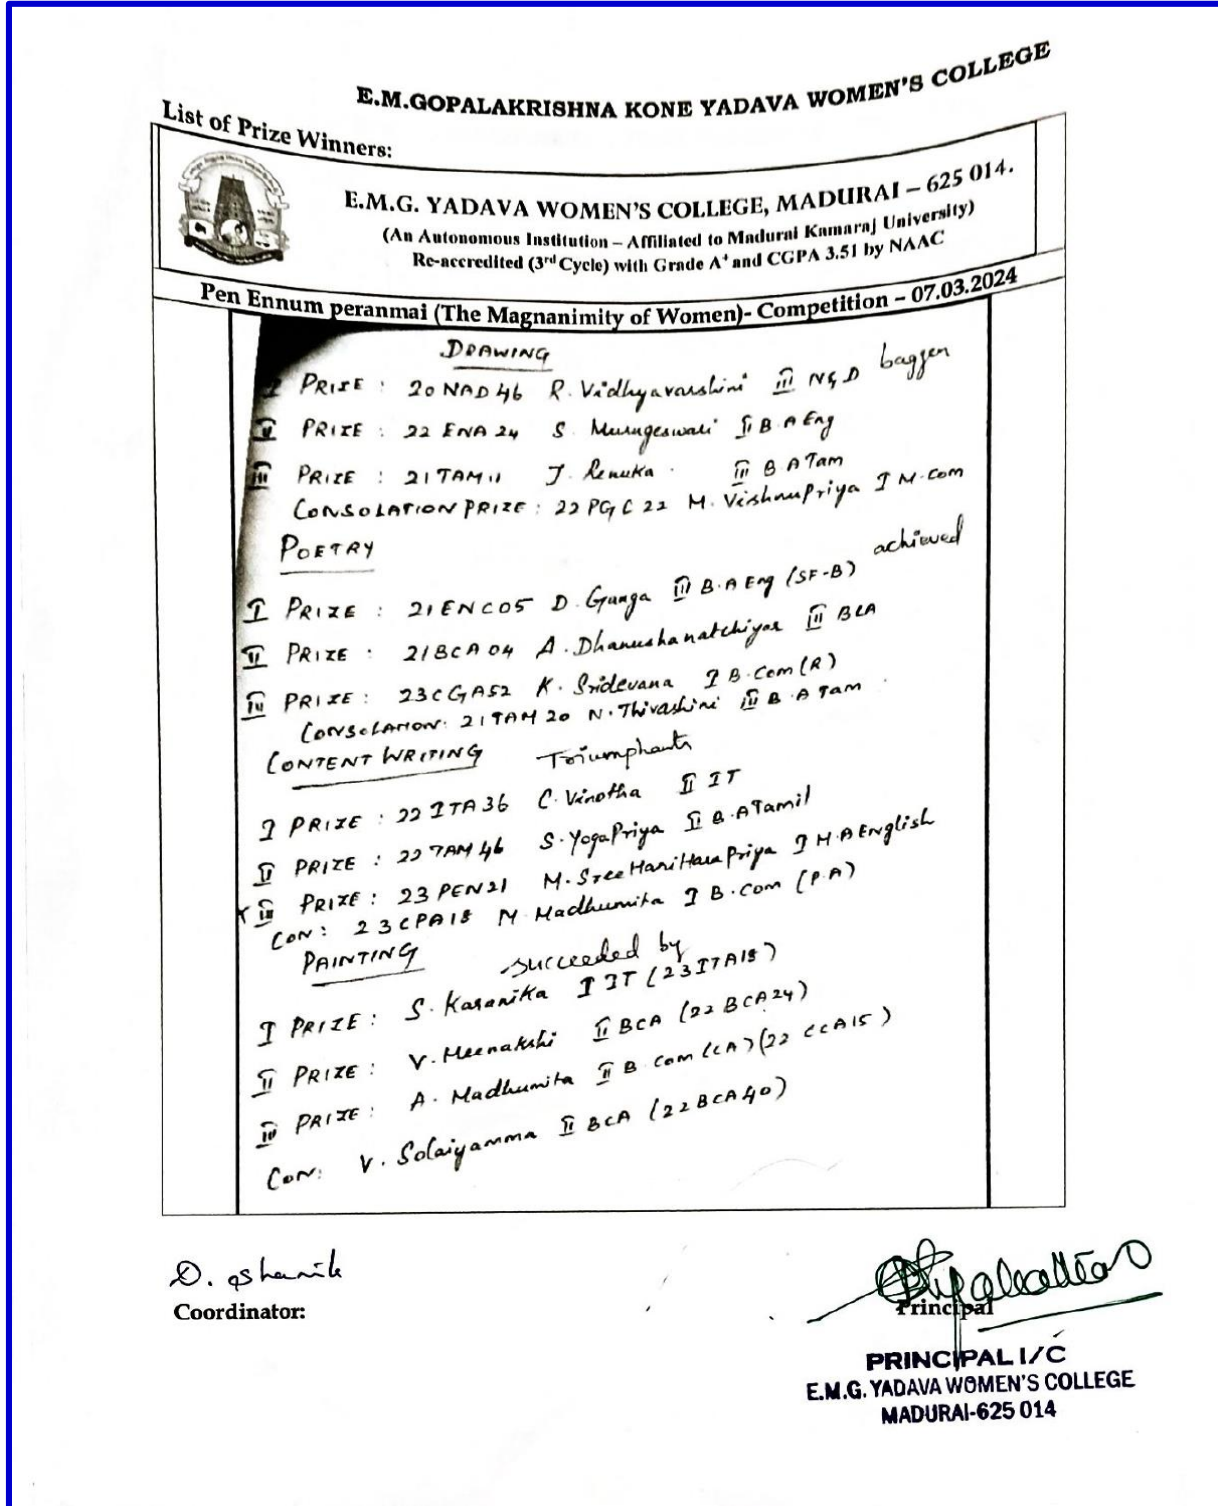 E.M.GOPALAKRISHNA KONE YADAVA WOMEN'S COLLEGE
List of Prize Winners:
E.M.G. YADAVA WOMEN'S COLLEGE, MADURAI – 625 014.
(An Autonomous Institution – Affiliated to Madurai Kamaraj University)
Re-accredited (3rd Cycle) with Grade A+ and CGPA 3.51 by NAAC
Pen Ennum peranmai (The Magnanimity of Women)- Competition – 07.03.2024
DRAWING
I PRIZE : 20 NAD 46 R. Vidhyavarshini III N&D baggen
II PRIZE : 22 ENA 24 S. Murugeswari II B.A Eng
III PRIZE : 21TAM11 J. Renuka. III B A Tam
CONSOLATION PRIZE : 22 PGC 22 M. VishnuPriya I M.Com
POETRY
I PRIZE : 21ENC05 D. Ganga III B.A Eng (SF-B) achieved
II PRIZE : 21BCA04 A. Dhanushanatchiyar III BCA
III PRIZE : 23CGA52 K. Sridevana I B.Com(R)
CONSOLATION: 21TAM 20 N. Thivashini III B.A Tam
CONTENT WRITING Triumphants
I PRIZE : 22 ITA36 C. Vinotha II IT
II PRIZE : 22 TAM 46 S. YogaPriya II B.A Tamil
III PRIZE : 23 PEN21 M. SreeHariHaraPriya I M.A English
CON: 23CPA18 M. Madhumita I B.Com (P.A)
PAINTING succeeded by
I PRIZE : S. Karanika I IT (23ITA18)
II PRIZE : V. Meenakshi II BCA (22 BCA24)
III PRIZE : A. Madhumita II B.Com (CA) (22 CCA15)
CON: V. Solaiyamma II BCA (22BCA40)
Coordinator:
Principal
PRINCIPAL I/C
E.M.G. YADAVA WOMEN'S COLLEGE
MADURAI-625 014